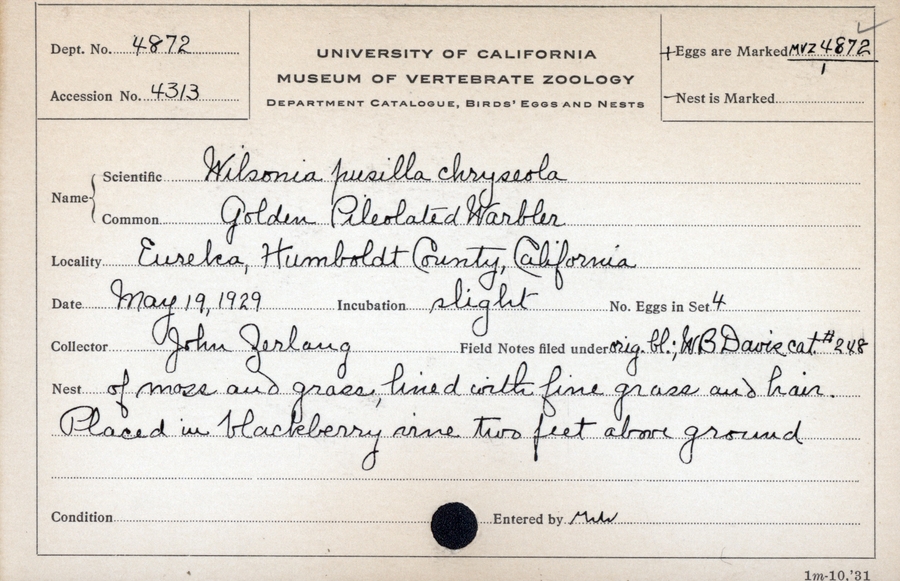 Dept. No. 4872
Accession No. 4313
UNIVERSITY OF CALIFORNIA
MUSEUM OF VERTEBRATE ZOOLOGY
DEPARTMENT CATALOGUE, BIRDS' EGGS AND NESTS
+Eggs are Marked MVZ 4872
1
–Nest is Marked
Name { Scientific Wilsonia pusilla chryseola
Common Golden Pileolated Warbler
Locality Eureka, Humboldt County, California
Date May 19, 1929 Incubation slight No. Eggs in Set 4
Collector John Zerlang Field Notes filed under orig. bl.; WB Davis cat. #248
Nest of moss and grass, lined with fine grass and hair.
Placed in blackberry vine two feet above ground
Condition Entered by
1m-10,'31